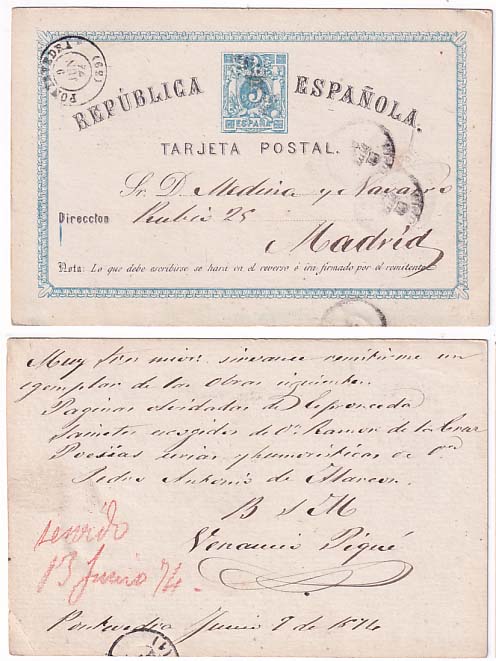 PONTEVEDRA (62)
REPÚBLICA ESPAÑOLA.
5
ESPAÑA
TARJETA POSTAL.
Sr. D. Medina y Navarro
Direccion Rubio 25
Madrid
Nota: Lo que debe escribirse se hará en el reverso é irá firmado por el remitente.
Muy Sres mios: sirvanse remitirme un
egemplar de las obras siguientes.
Paginas olvidadas de Espronceda
Sainetes escogidos de Dn. Ramon de la Cruz
Poesias serias y humoristicas de
Pedro Antonio de Alarcon.
B S M
Venancio Piqué
servido
13 Junio 74.
Pontevedra Junio 7 de 1874